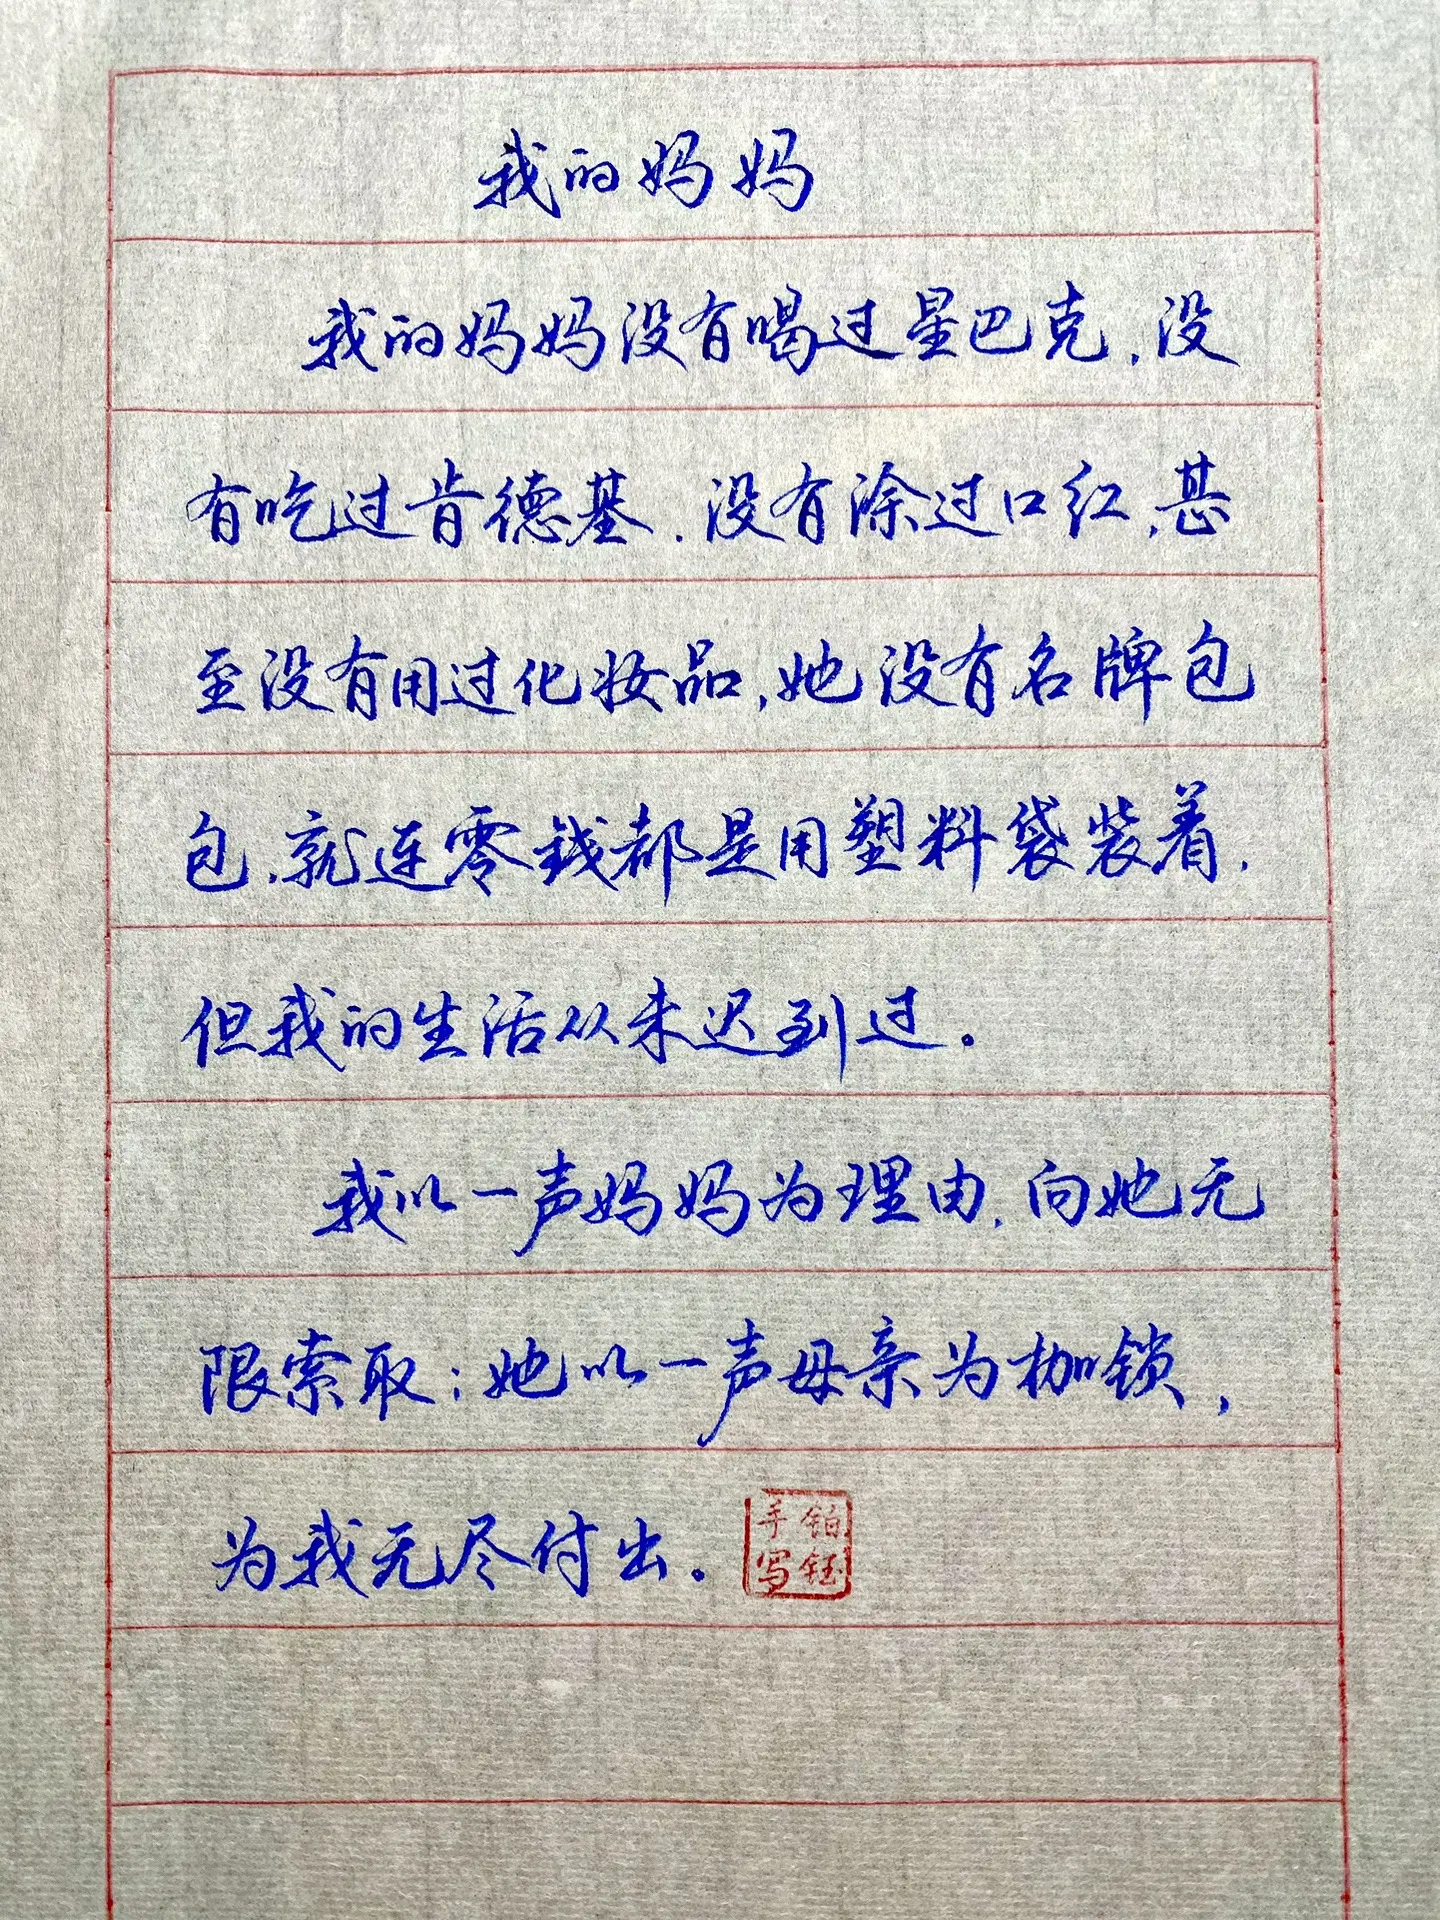 我的妈妈
我的妈妈没有喝过星巴克，没
有吃过肯德基，没有涂过口红，甚
至没有用过化妆品，她没有名牌包
包，就连零钱都是用塑料袋装着，
但我的生活从未迟到过。
我以一声妈妈为理由，向她无
限索取；她以一声母亲为枷锁，
为我无尽付出。
铂钰
手写